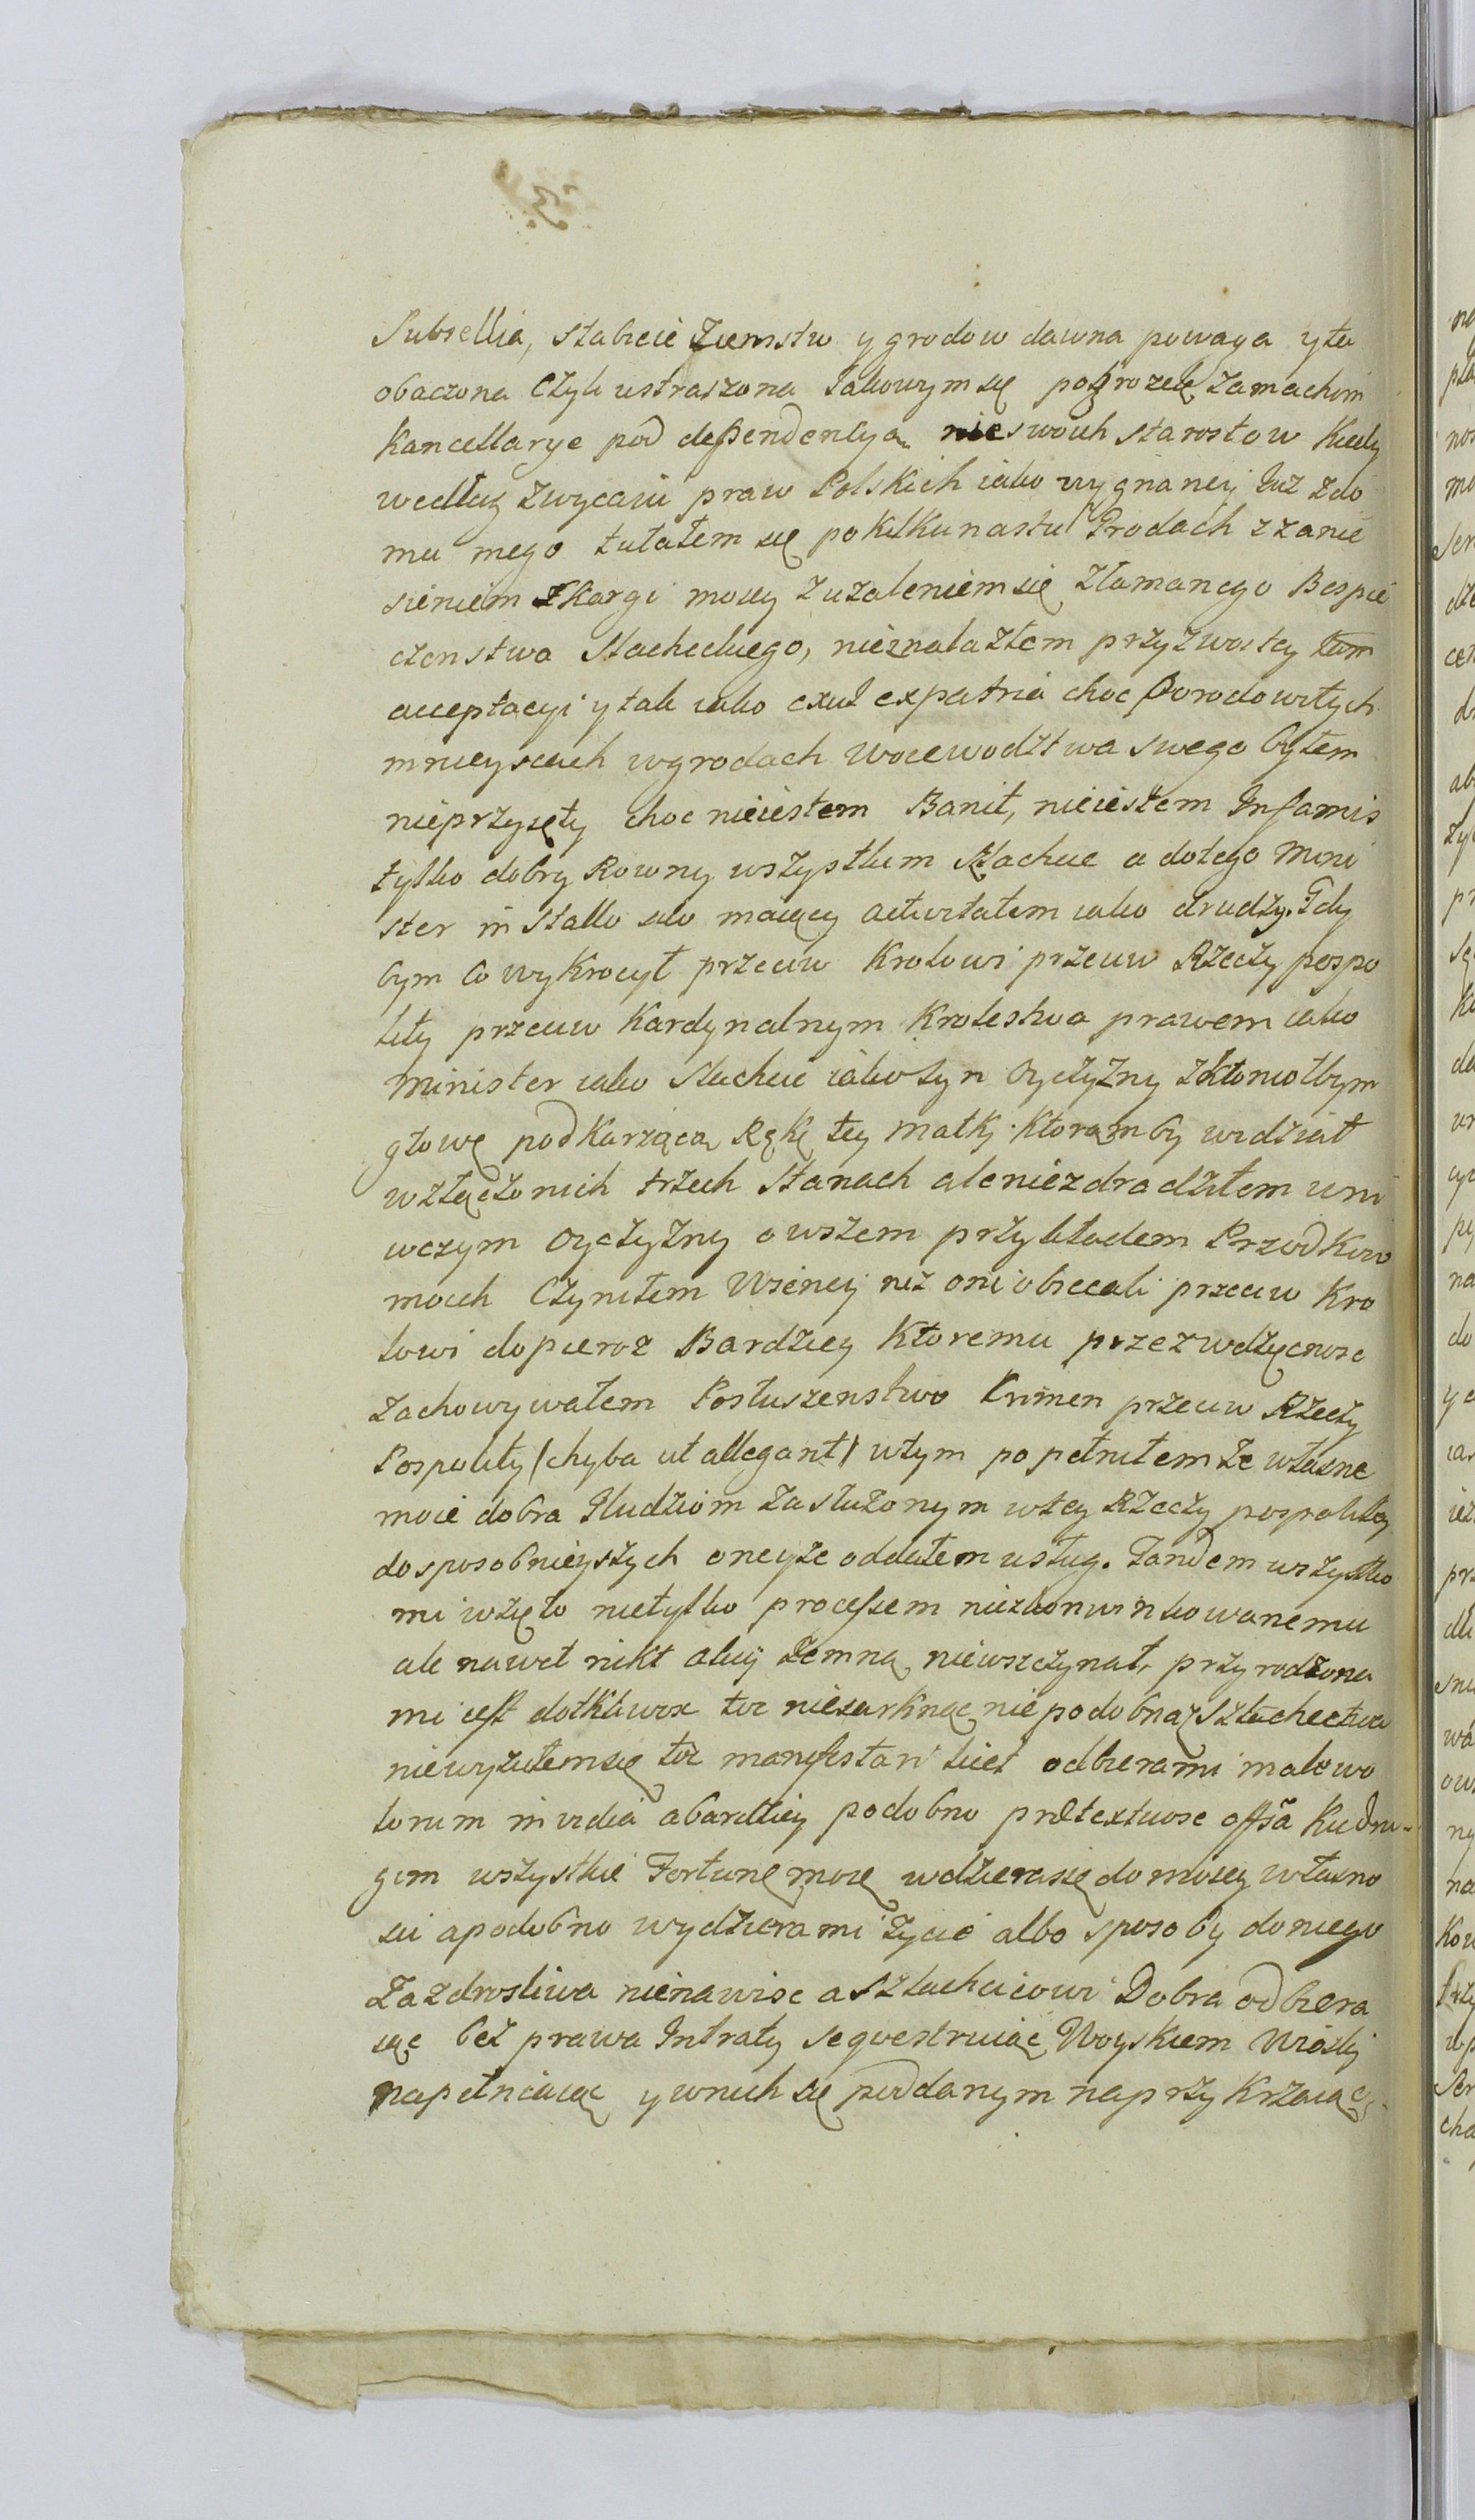 Subsellia, słabieie Ziemstw y grodow dawna powaga y ta
obaczona Czyli ustraszona takowym się pogrozek zamachom
Kancellarye pod dependencyą nie swoich starostow Kiedy
według zwyczaiu praw Polskich iako wygnaney Juz zdo
mu mego tułałem się po kilkunastu Grodach z zanie
sieniem skargi moiey z uzaleniem się złamanego Bespie
czenstwa slacheckiego, nieznalazłem przyzwoitey tam
acceptacyi y tak iako exul expatria choc porodowitych
mnieyscach w grodach Woiewodztwa swego byłem
nieprzyięty choc nieiestem Banit, nieiestem Infamis
tylko dobry Rowny wszystkim slachcic a dotego Mini
ster in stallo maiący iako drudzy. Gdy
bym co wykrocył przeciw Krolowi przeciw Rzeczy pospo
lity przeciw Kardynalnym Krolestwa prawem iako
Minister iako slachcic iako syn Oyczyzny zkłoniołbym
głowę pod karzącą Rękę tey matki Ktorąmby widział
w złączonich trzech stanach aleniezdradziłem wni
wczym Oyczyzny owszem przykładem Przodkow
moich Czyniłem Wiency niz oni obiecali przeciw Kro
lowi dopieroz Bardziey Ktoremu przez wdzięcnosc
zachowywałem Posłuszenstwo Krimen przeciw Rzeczy
Pospolity /chyba ut allegant/ wtym popełniłem ze własne
moie dobra Iludziom zasłużonym wtey Rzeczy pospolitey
do sposobnieyszych oneyze oddałem usług. Tandem wszystko
mi wzięto nietylko processem niezkonwinkowanemu
ale nawet nikt akcyi zemną niewszczynał, przyrodzona
mi iest dotkliwosc toc niezarknąc niepodobna z Szlachectwa
niewyzułemsię toz manifestari licet odbierami malewo
lorum invidia abardziey podobno prætextuose offsã Ku dru-
gim wszystkie Fortunę moię wdzierasię do moiey własno
sci apodobno wydziera mi życie albo sposoby do niego
Zazdrosliwa nienawisc a szlachcicowi Dobra odbiera
iąc bez prawa Intraty seqvestruiąc Woyskiem Wioski
napełniaiąc y wnich się poddanym naprzykrzaiąc